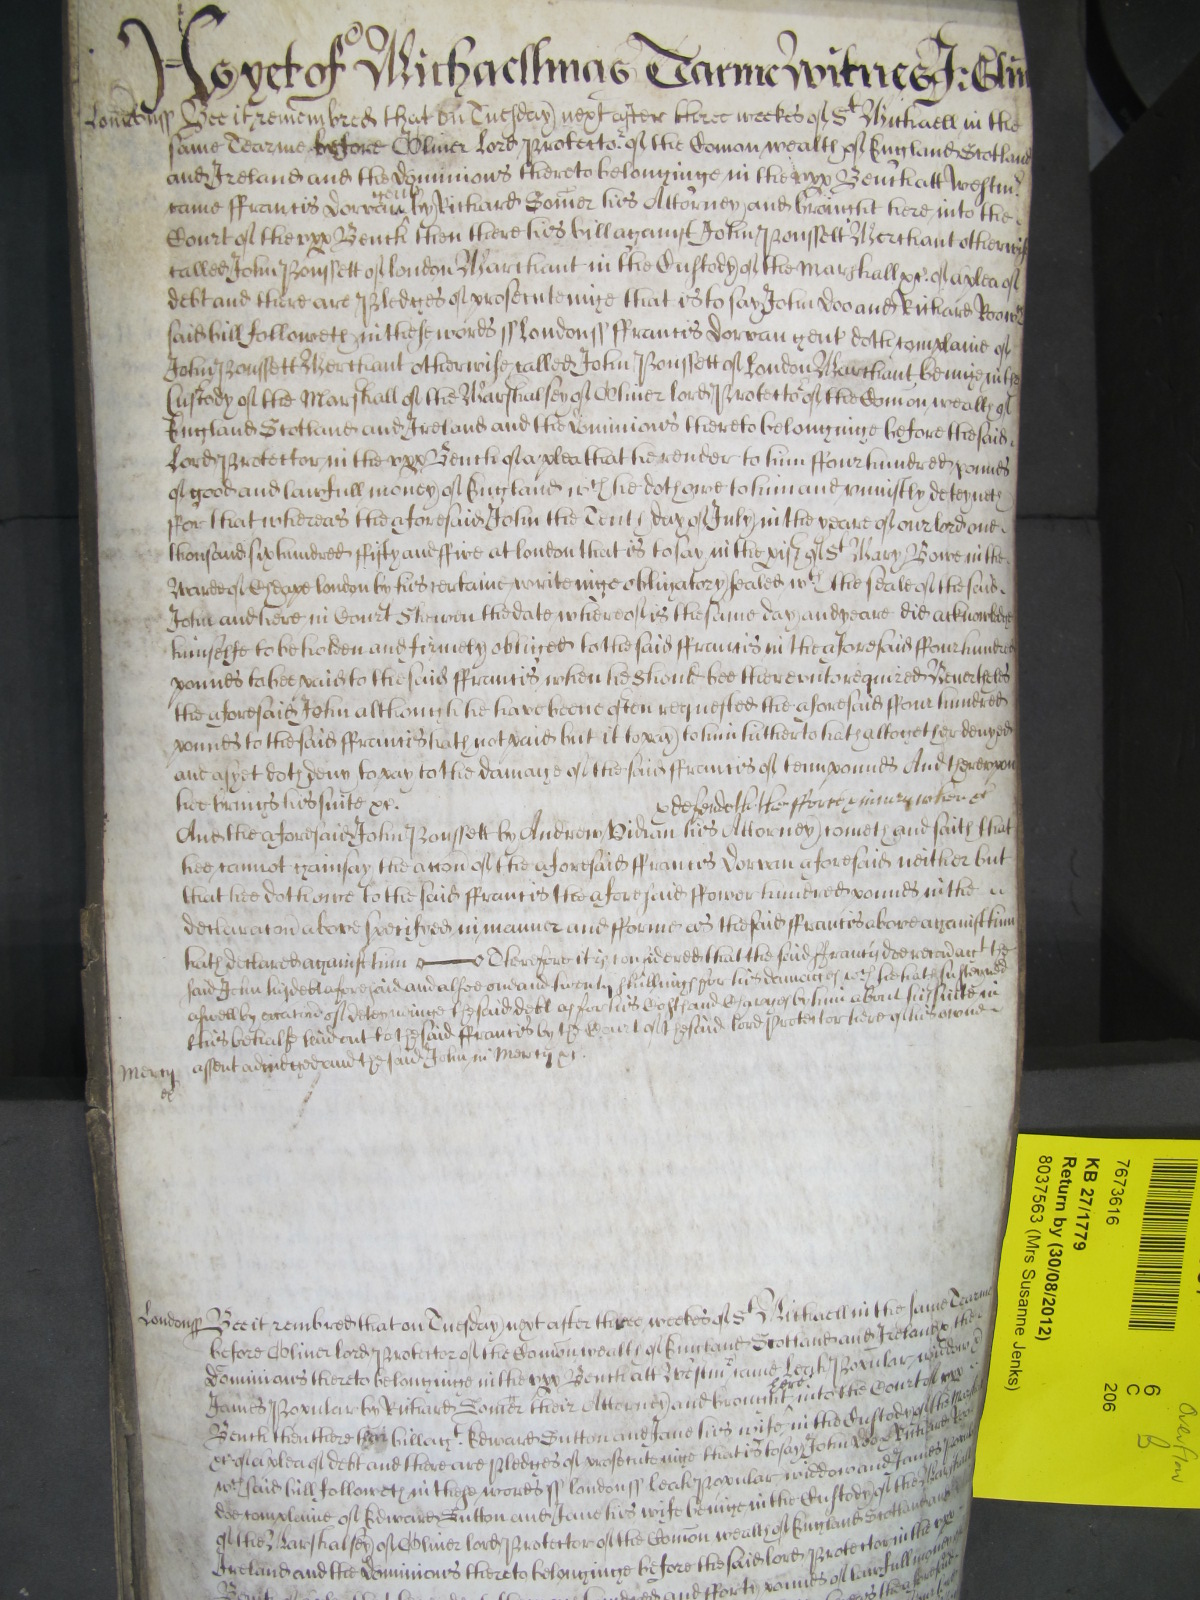 As yet of Michaellmas Tearme Witnes J: Glin
Londonss Bee it remembred that on Tuesday next after three weekes of St Michaell in the
same Tearme before Oliver Lord Protector of the Comon wealth of England Scotland
and Ireland and the Dominions thereto belonginge in the vpp Bench att Westmr
came Ffrancis Dorvan gent by Richard Somer his Attorney and brought here into the
Court of the vpp Bench then there his bill against John Poussett Merchant otherwise
called John Poussett of London Marchant in the Custody of the Marshall &c. of a plea of
debt and there are Pledges of prosecuteinge that is to say John Doo and Richard Roo wch
said bill followeth in these words ss Londonss Ffrancis Dorvan gent doth complaine of
John Poussett Merchant otherwise called John Poussett of London Marchant beinge in the
Custody of the Marshall of the Marshalsey of Oliver lord Protector of the Comon wealth of
England Scotland and Ireland and the Dominions thereto belonginge before the said
Lord Protector in the vpp Bench of a plea that he render to him ffour hundred pounds
of good and lawfull money of England wch he doth owe to him and uniustly deteyneth
ffor that whereas the aforesaid John the Tenth day of July in the yeare of our lord one
thousand six hundred ffifty and ffive at london that is to say in the pish of St Mary Bowe in the
Warde of Cheape london by his certaine writeinge obligatory sealed wth the seale of the said
John and here in Court Shewen the date whereof is the same day and yeare did acknowledge
himselfe to be holden and firmely obliged to the said Ffrancis in the aforesaid ffour hundred
pounds to bee paid to the said Ffrancis when he should bee thereunto required Neverthelesse
the aforesaid John although he have beene often requested the aforesaid ffour hundred
pounds to the said Ffrancis hath not paid but it to pay to him hitherto hath altogether denyed
and as yet doth deny to pay to the damage of the said Ffrancis of tenn pounds And thereupon
hee brings his suite &c.
& defendeth the fforce & iniury when &c
And the aforesaid John Poussett by Andrew Vidian his Attorney cometh and saith that
hee cannot gainsay the accon of the aforesaid Ffrancis Dorvan aforesaid neither but
that hee doth owe to the said Ffrancis the aforesaid ffower hundred pounds in the
declaracon above specifyed in manner and fforme as the said Ffrancis above against him
hath declared against him Therefore it is considered that the said Ffrancis doe recover agt the
said John his debt aforesaid and alsoe one and twenty shillings for his damages wch he hath susteyned
aswell by occacion of deteyninge the said debt as for his Costs and Charges by him about his suite in
this behalfe laid out to the said Ffrancis by the Court of the said lord Protector here of his owne
assent adiudged and the said John in Mercy &c.
Mercy
&c
Londonss Bee it rembred that on Tuesday next after three weekes of St Michaell in the same Tearme
before Oliver lord Protector of the Comon wealth of England Scotland and Ireland & the
Dominions thereto belonginge in the vpp Bench att Westmr came Leah Popular widdow &
James Popular by Richard Somer their Attorney and brought here into the Court of vpp
Bench then there their bill agt Edward Sutton and Jane his wife in the Custody of the Marshall
&c of a plea of debt and there are Pledges of prosecuteinge that is to say John Doo & Richard Roo
wch said bill followeth in these words ss Londonss Leah Popular widdow and James Popular
doe complaine of Edward Sutton and Jane his wife beinge in the Custody of the Marshall
of the Marshalsey of Oliver lord Protector of the Comon wealth of England Scotland and
Ireland and the Dominions thereto belonginge before the said lord Protector in the vpp
Bench of a plea that hundred and fforty pounds of lawfull money
7673616
KB 27/1779
Return by (30/08/2012)
8037563 (Mrs Susanne Jenks)
6
C
206
Overflow
B